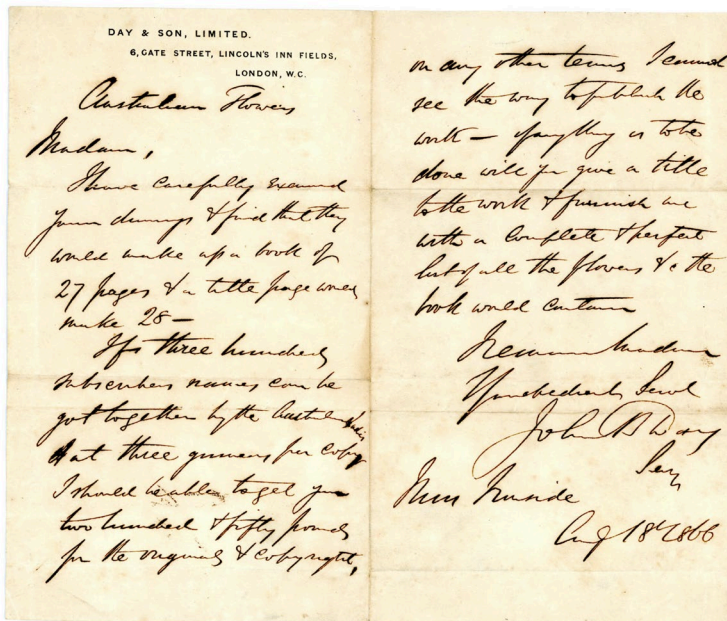 DAY & SON, LIMITED.
6, GATE STREET, LINCOLN'S INN FIELDS,
LONDON, W.C.
Australian Flowers
Madam,
I have carefully examined
your drawings & find that they
would make up a book of
27 pages & a title page would
make 28 —
If three hundred
subscribers names can be
got together by the Australian
at three guineas per copy
I should be able to get you
two hundred & fifty pounds
for the originals & copyright,
on any other terms I cannot
see the way to publish the
work — if anything is to be
done will you give a title
to the work & furnish me
with a complete & perfect
list of all the flowers &c the
book would contain
I remain Madam
Your obedient Servt
John B Day
Secy
Miss
Aug 18th 1866